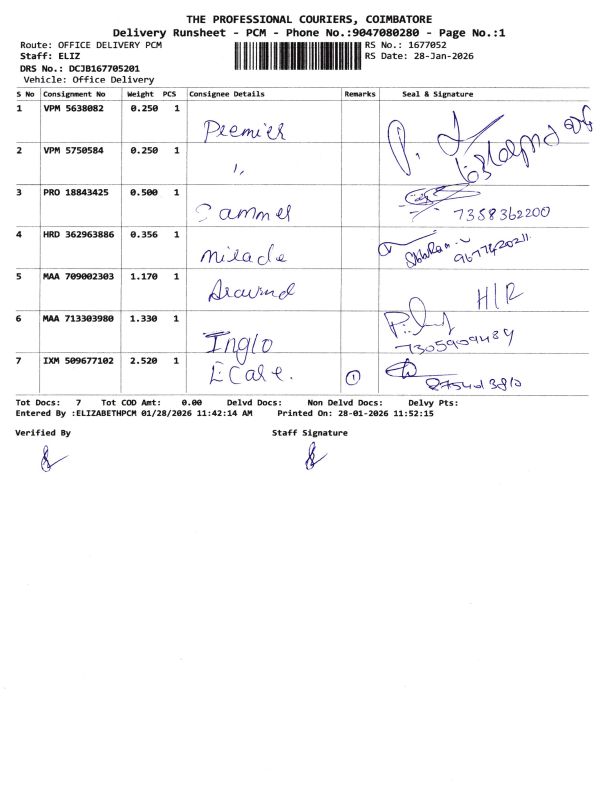 THE PROFESSIONAL COURIERS, COIMBATORE
Delivery Runsheet - PCM - Phone No.:9047080280 - Page No.:1
Route: OFFICE DELIVERY PCM RS No.: 1677052
Staff: ELIZ RS Date: 28-Jan-2026
DRS No.: DCJB167705201
Vehicle: Office Delivery
S No Consignment No Weight PCS Consignee Details Remarks Seal & Signature
1 VPM 5638082 0.250 1 Premier
2 VPM 5750584 0.250 1 "
3 PRO 18843425 0.500 1 7358362200
4 HRD 362963886 0.356 1
5 MAA 709002303 1.170 1 H/R
6 MAA 713303980 1.330 1 Inglo
7 IXM 509677102 2.520 1 E Care. 1
Tot Docs: 7 Tot COD Amt: 0.00 Delvd Docs: Non Delvd Docs: Delvy Pts:
Entered By :ELIZABETHPCM 01/28/2026 11:42:14 AM Printed On: 28-01-2026 11:52:15
Verified By Staff Signature